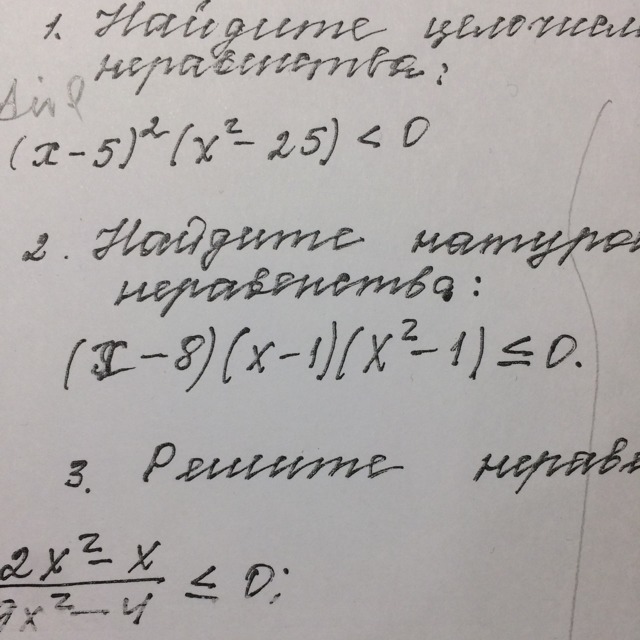 1. Найдите целочисл
неравенства:
(x-5)²(x²-25)<0
2. Найдите натура
неравенства:
(x-8)(x-1)(x²-1)≤0.
3. Решите нерав
2x²-x
9x²-4 ≤ 0;